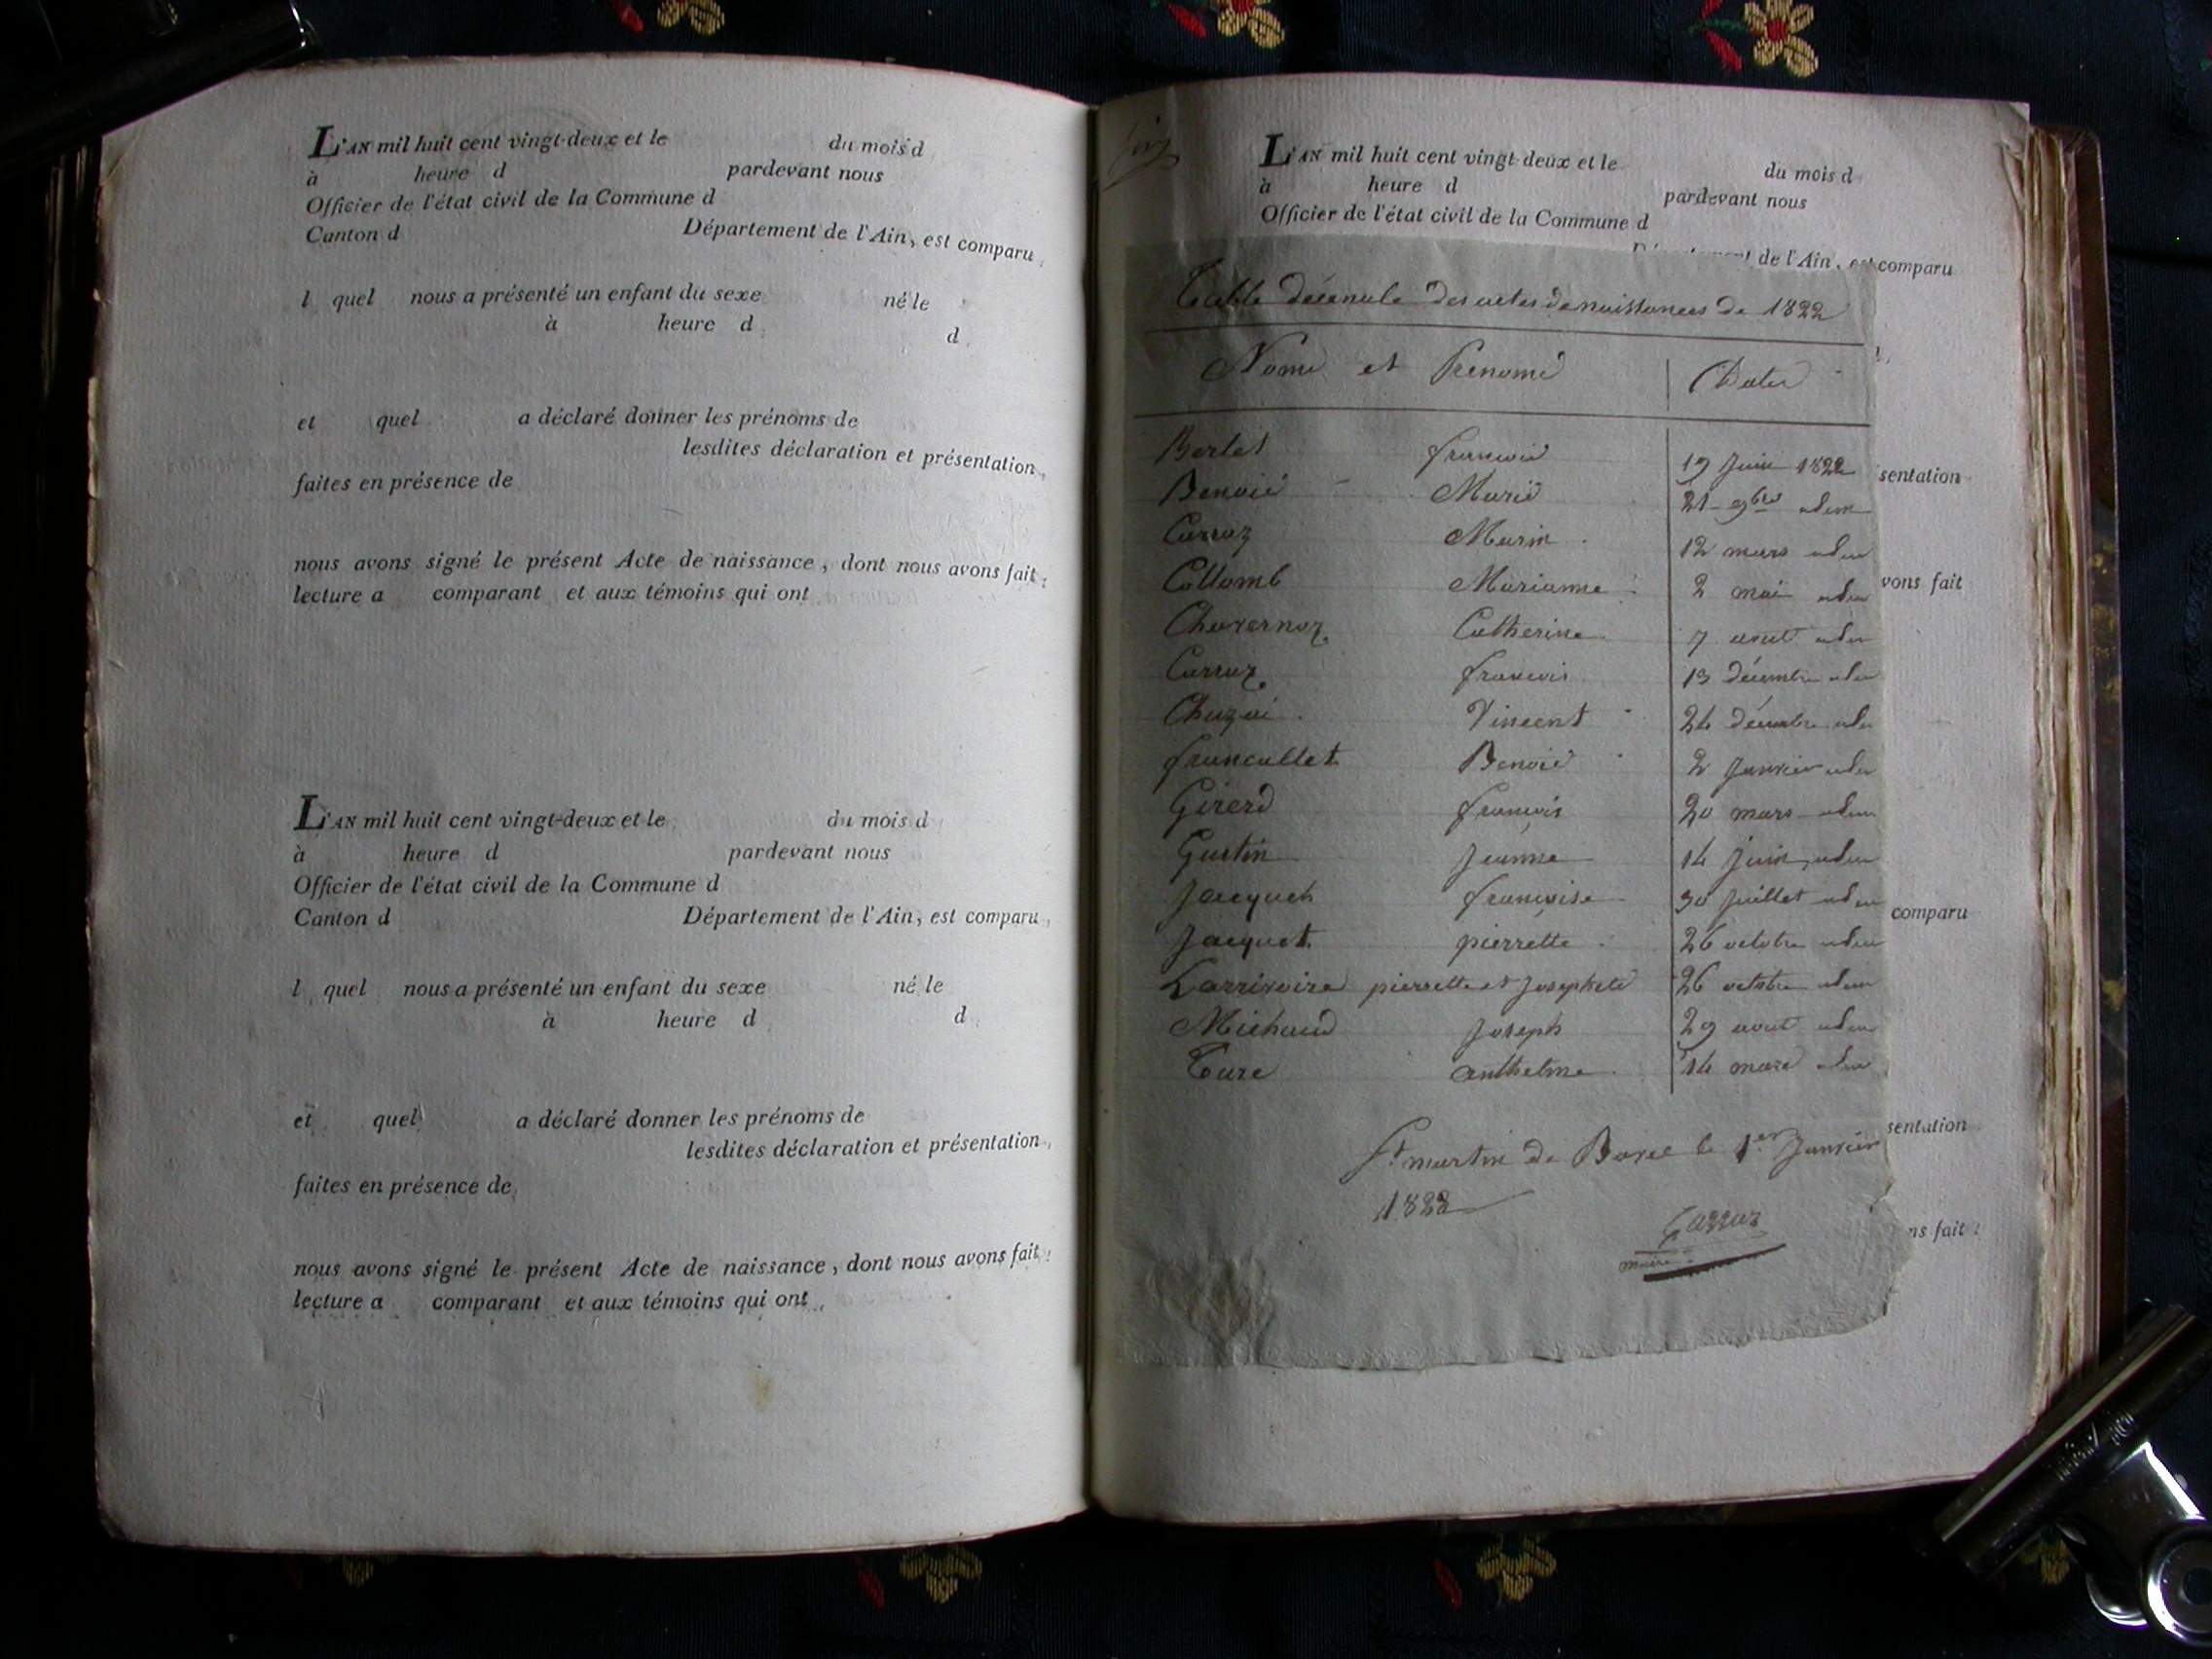 L'AN mil huit cent vingt-deux et le du mois d
à heure d pardevant nous
Officier de l'état civil de la Commune d
Canton d Département de l'Ain, est comparu
l quel nous a présenté un enfant du sexe né le
à heure d d
et quel a déclaré donner les prénoms de
lesdites déclaration et présentation
faites en présence de
nous avons signé le présent Acte de naissance, dont nous avons fait
lecture a comparant et aux témoins qui ont
L'AN mil huit cent vingt-deux et le du mois d
à heure d pardevant nous
Officier de l'état civil de la Commune d
Canton d Département de l'Ain, est comparu
l quel nous a présenté un enfant du sexe né le
à heure d d
et quel a déclaré donner les prénoms de
lesdites déclaration et présentation
faites en présence de
nous avons signé le présent Acte de naissance, dont nous avons fait
lecture a comparant et aux témoins qui ont
L'AN mil huit cent vingt-deux et le du mois d
à heure d pardevant nous
Officier de l'état civil de la Commune d
de l'Ain, est comparu
Table décenale des actes de naissances de 1822
Noms et Prenoms Dates
Bertet francois 19 Juin 1822
Benoit Marie 21 9bre idem
Carraz Marin 12 mars idem
Collomb Marianne 2 mai idem
Chavernoz Catherine 7 aout idem
Carraz francois 13 décembre idem
Vincent 24 décembre idem
francallet Benoit 2 Janvier idem
Girerd francois 20 mars idem
Gustin Jeanne 14 juin idem
francoise 30 Juillet idem
Jacquet pierrette 26 octobre idem
Larrivoire pierrette et Josephete 26 octobre idem
Michaud Joseph 29 aout idem
anthelme 14 mars idem
sentation
vons fait
comparu
St martin de Bavel le 1er Janvier
1823
Carraz
maire
sentation
ns fait